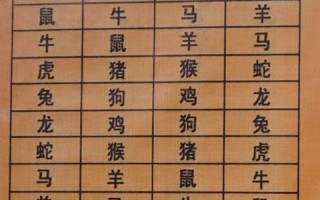 鼠 牛 马 羊
牛 鼠 羊 马
虎 猪 猴 蛇
兔 狗 鸡 龙
龙 鸡 狗 兔
蛇 猴 猪 虎
马 羊 鼠 牛